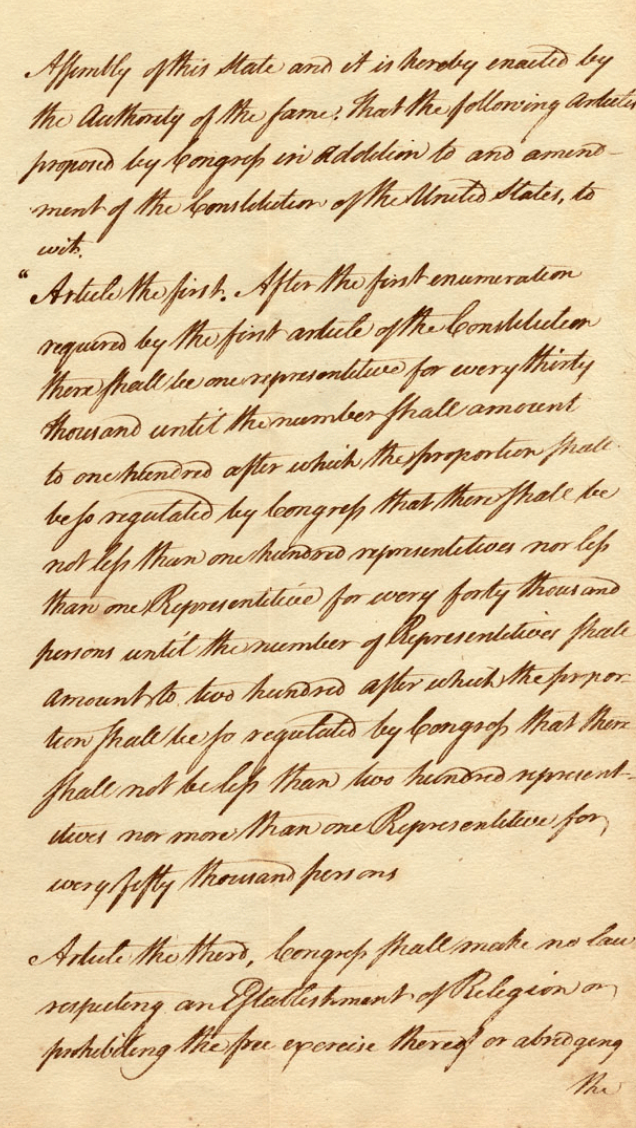 Assembly of this State and it is hereby enacted by
the Authority of the same, That the following articles
proposed by Congress in Addition to and amend-
ment of the Constitution of the United States, to
wit.
"Article the first. After the first enumeration
required by the first article of the Constitution
there shall be one representitive for every thirty
thousand until the number shall amount
to one hundred after which the proportion shall
be so regulated by Congress that there shall be
not less than one hundred representitives nor less
than one Representitive for every forty thousand
persons until the number of Representitives shall
amount to two hundred after which the propor-
tion shall be so regulated by Congress that there
shall not be less than two hundred represent-
itives nor more than one Representitive for
every fifty thousand persons
Article the third, Congress shall make no law
respecting an Establishment of Religion or
prohibiting the free exercise thereof or abridging
the